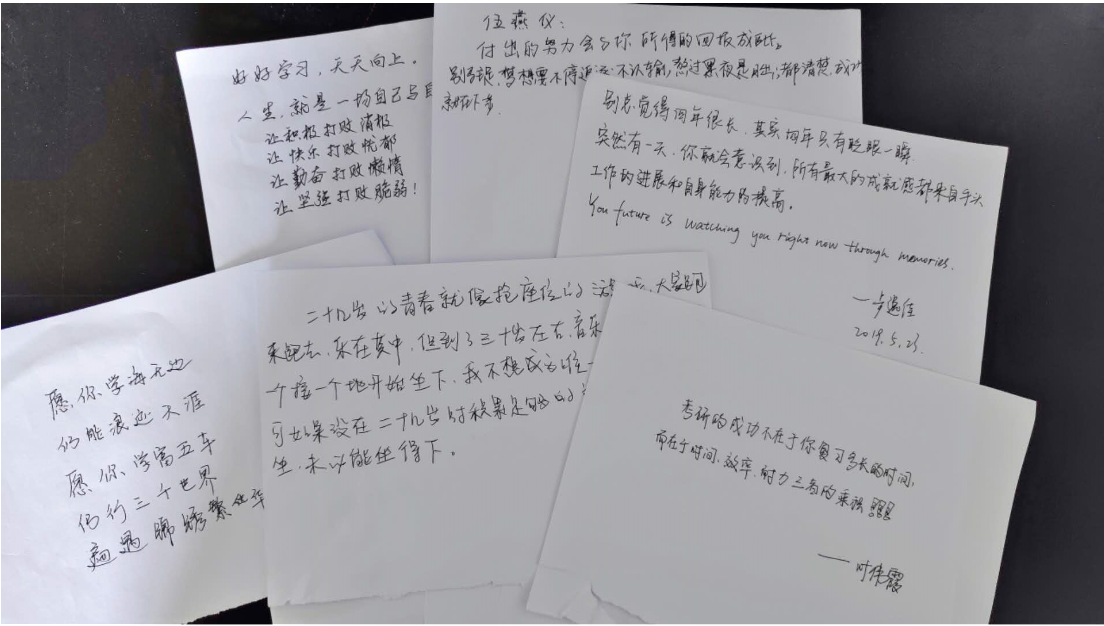 好好学习，天天向上。
人生，就是一场自己与自
让积极打败消极
让快乐打败忧郁
让勤奋打败懒惰
让坚强打败脆弱！
伍燕仪：
付出的努力会与你所得的回报成正比。
别气馁，梦想要不停追逐不认输，熬过黑夜是日出，都清楚，成功
就在下
别总觉得四年很长，其实四年只有眨眼一瞬
突然有一天，你就会意识到，所有最大的成就感都来自手头
工作的进展和自身能力的提高。
You future is watching you right now through memories.
——步
2019.5.23.
愿你学海无边
仍能浪迹天涯
愿你学富五车
仍行三个世界
遍愚锦绣繁华
二十几岁的青春就像抢座位的游 大家
来跑去，乐在其中，但到了三十岁左右，音乐
个接一个地开始坐下，我不想成为唯一
可如果没在二十几岁时积累足够的
坐，未必能坐得下。
考研的成功不在于你复习多长的时间，
而在于时间、效率、耐力三者的乘积!!!
——叶伟霞